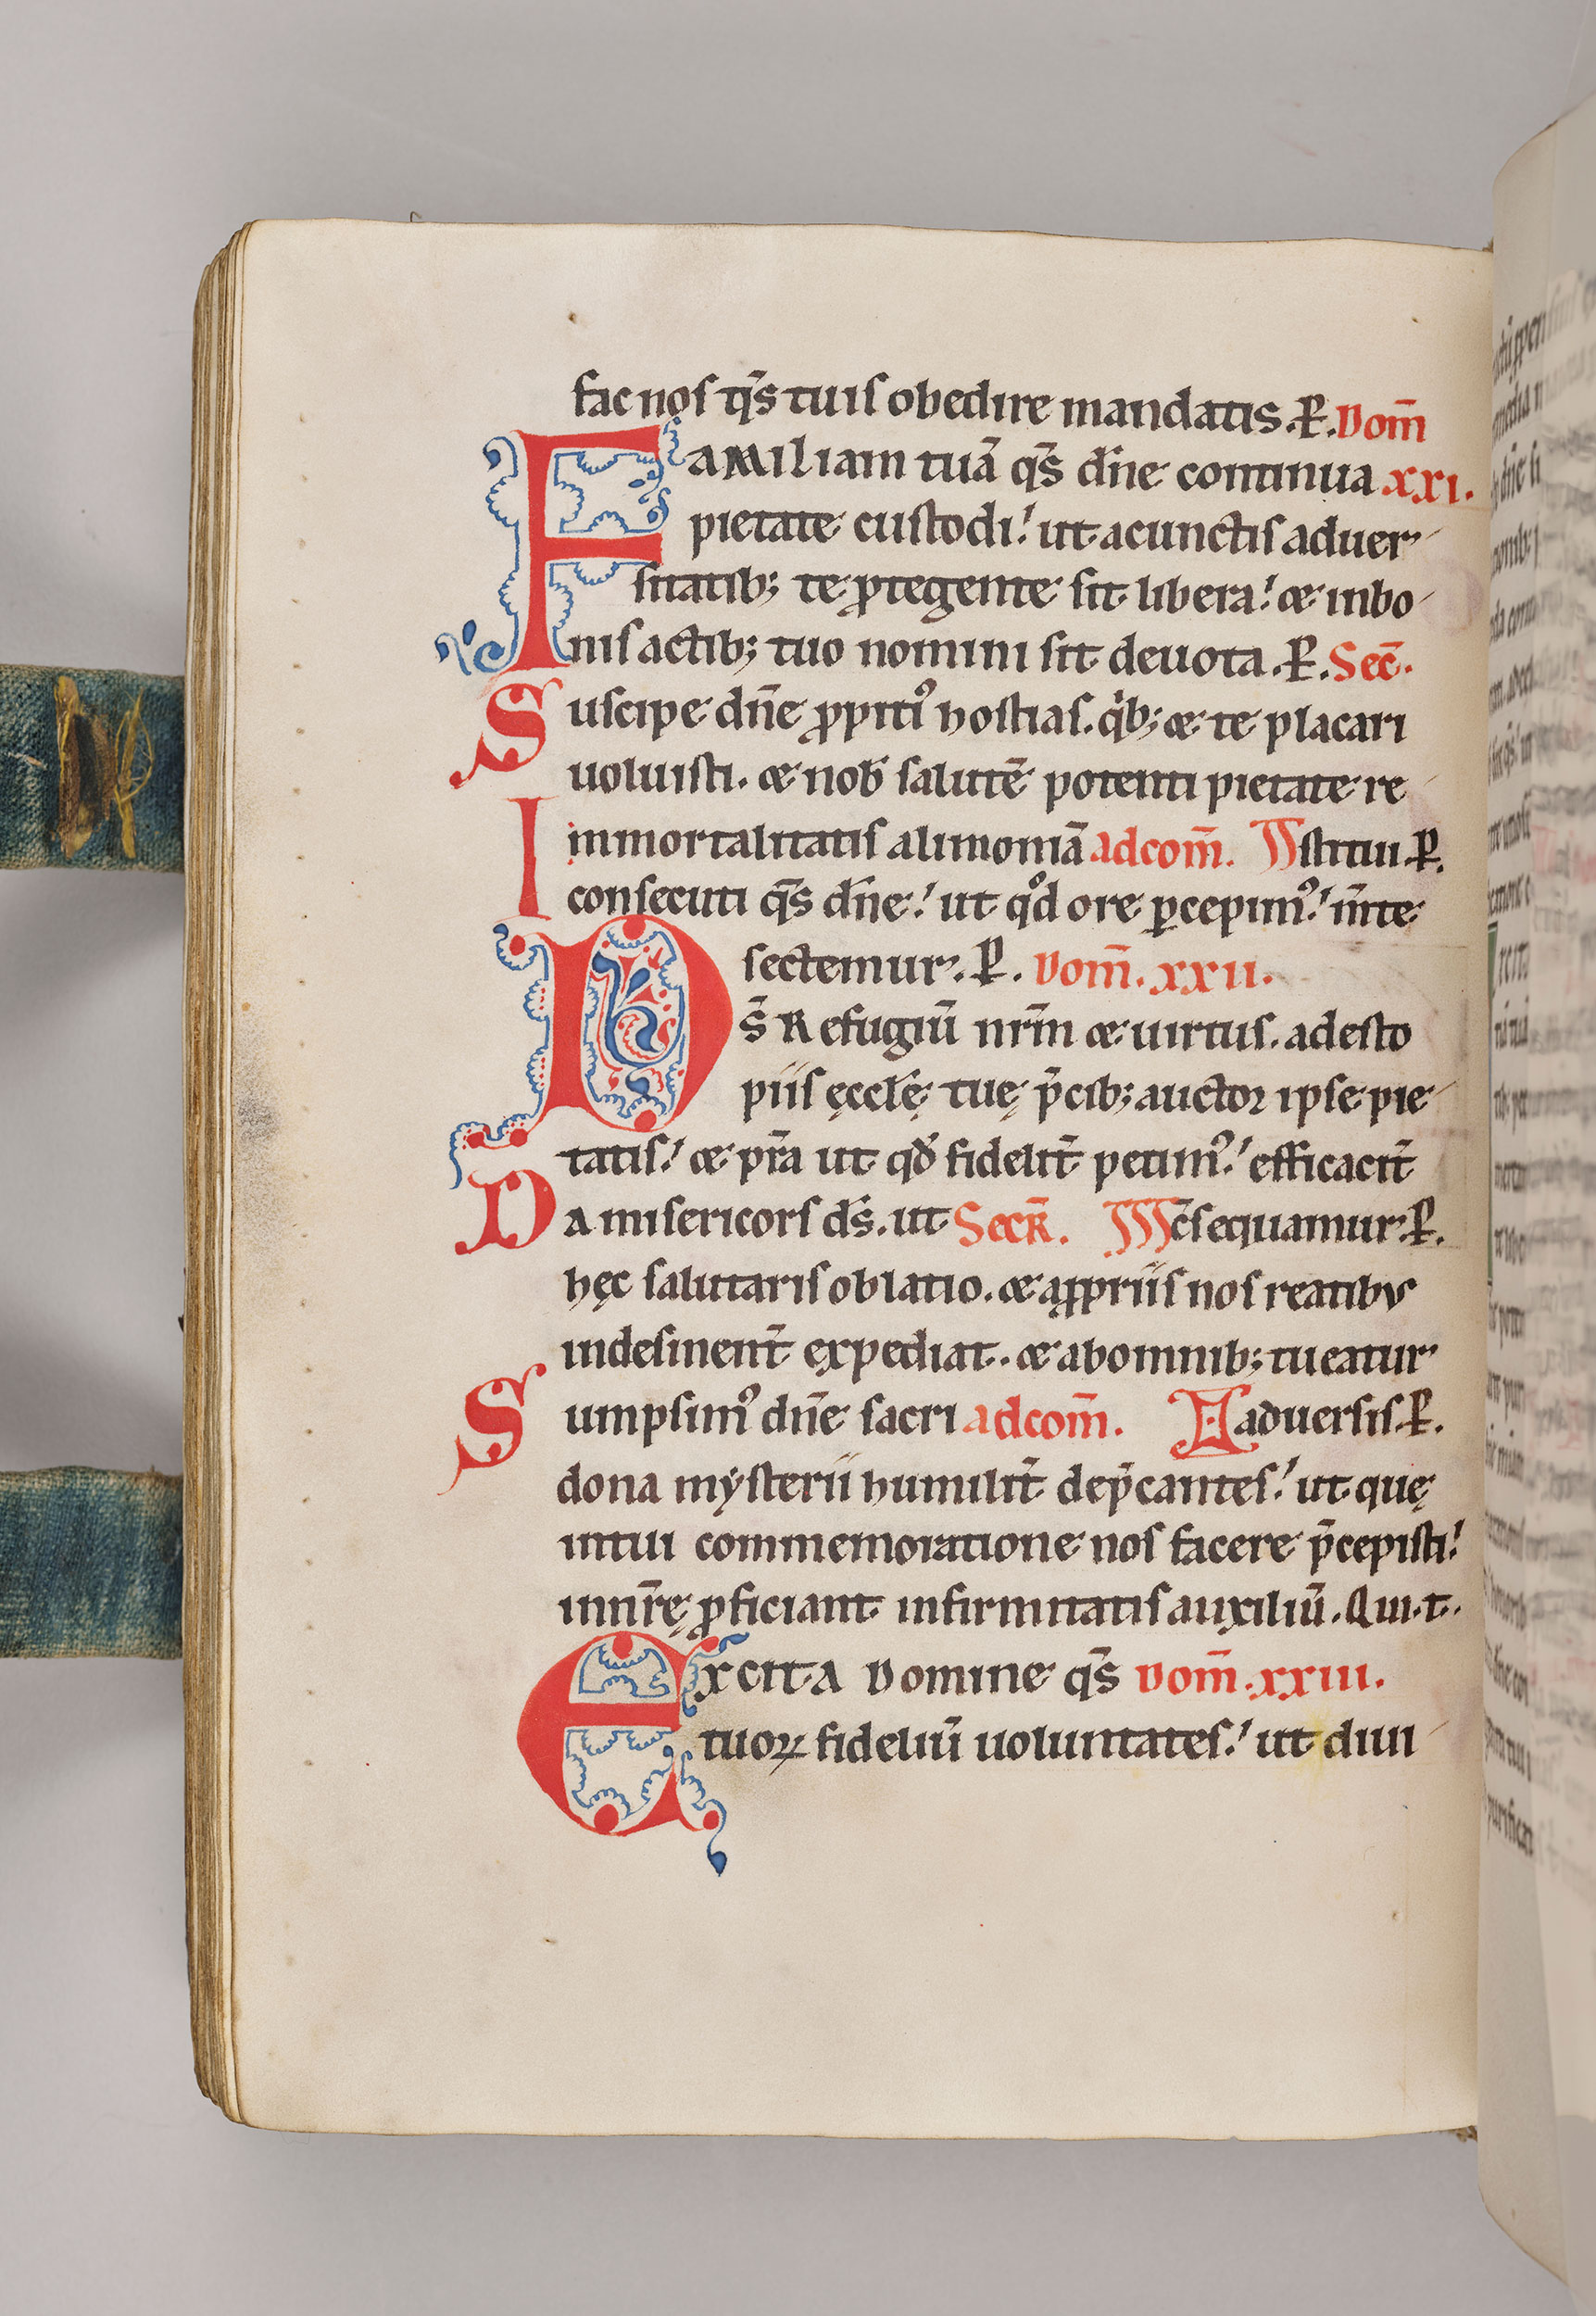 fac nos q̄s tuis obedire mandatis. P̲. Dom̄
FAMiliam tuā q̄s dn̄e continua xxi.
pietate custodi! ut acunctis aduer
sitatib; te ꝓtegente sit libera! & inbo
nis actib; tuo nomini sit deuota. P̲. Sec̄.
Suscipe dn̄e ꝓpiti᾿ hostias. qͥb; & te placari
uoluisti. & nob̄ salutē potenti pietate re
Inmortalitatis alimoniā adcom̄. stitui P̲.
consecuti q̄s dn̄e! ut qͦd ore ꝑcepim᾿! m̄te
sectemur. P̲. Dom̄. xxii.
Ds̄ Refugiū nr̄m & uirtus. adesto
piis ęccłę tuę p̄cib; auctor ipse pie
tatis! & pr̄a ut qđ fidelit̄ petim᾿! efficacit̄
DA misericors ds̄. ut SecR̄. c̄sequamur. P̲.
hęc salutaris oblatio. & aꝓpriis nos reatibus
indesinent̄ expediat. & abomnib; tueatur
Sumpsim᾿ dn̄e sacri adcom̄. aduersis. P̲.
dona mẏsterii humilit̄ dep̄cantes! ut quę
intui commemoratione nos facere p̄cepisti!
innr̄ę ꝓficiant infirmitatis auxiliū. Qui.t.
EXCITA Domine q̄s Dom̄. xxiii.
tuoꝝ fideliū uoluntates! ut diui